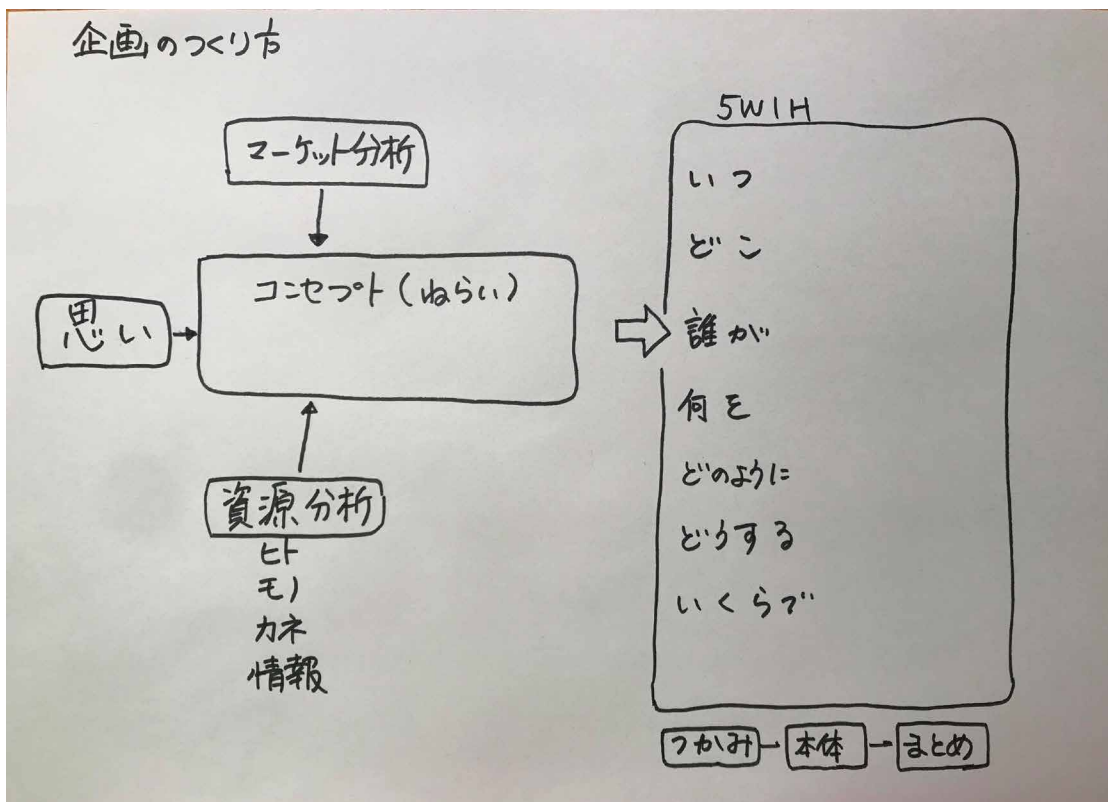 企画のつくり方
マーケット分析
思い
コンセプト(ねらい)
資源分析
ヒト
モノ
カネ
情報
5W1H
いつ
どこ
誰が
何を
どのように
どうする
いくらで
つかみ
本体
まとめ